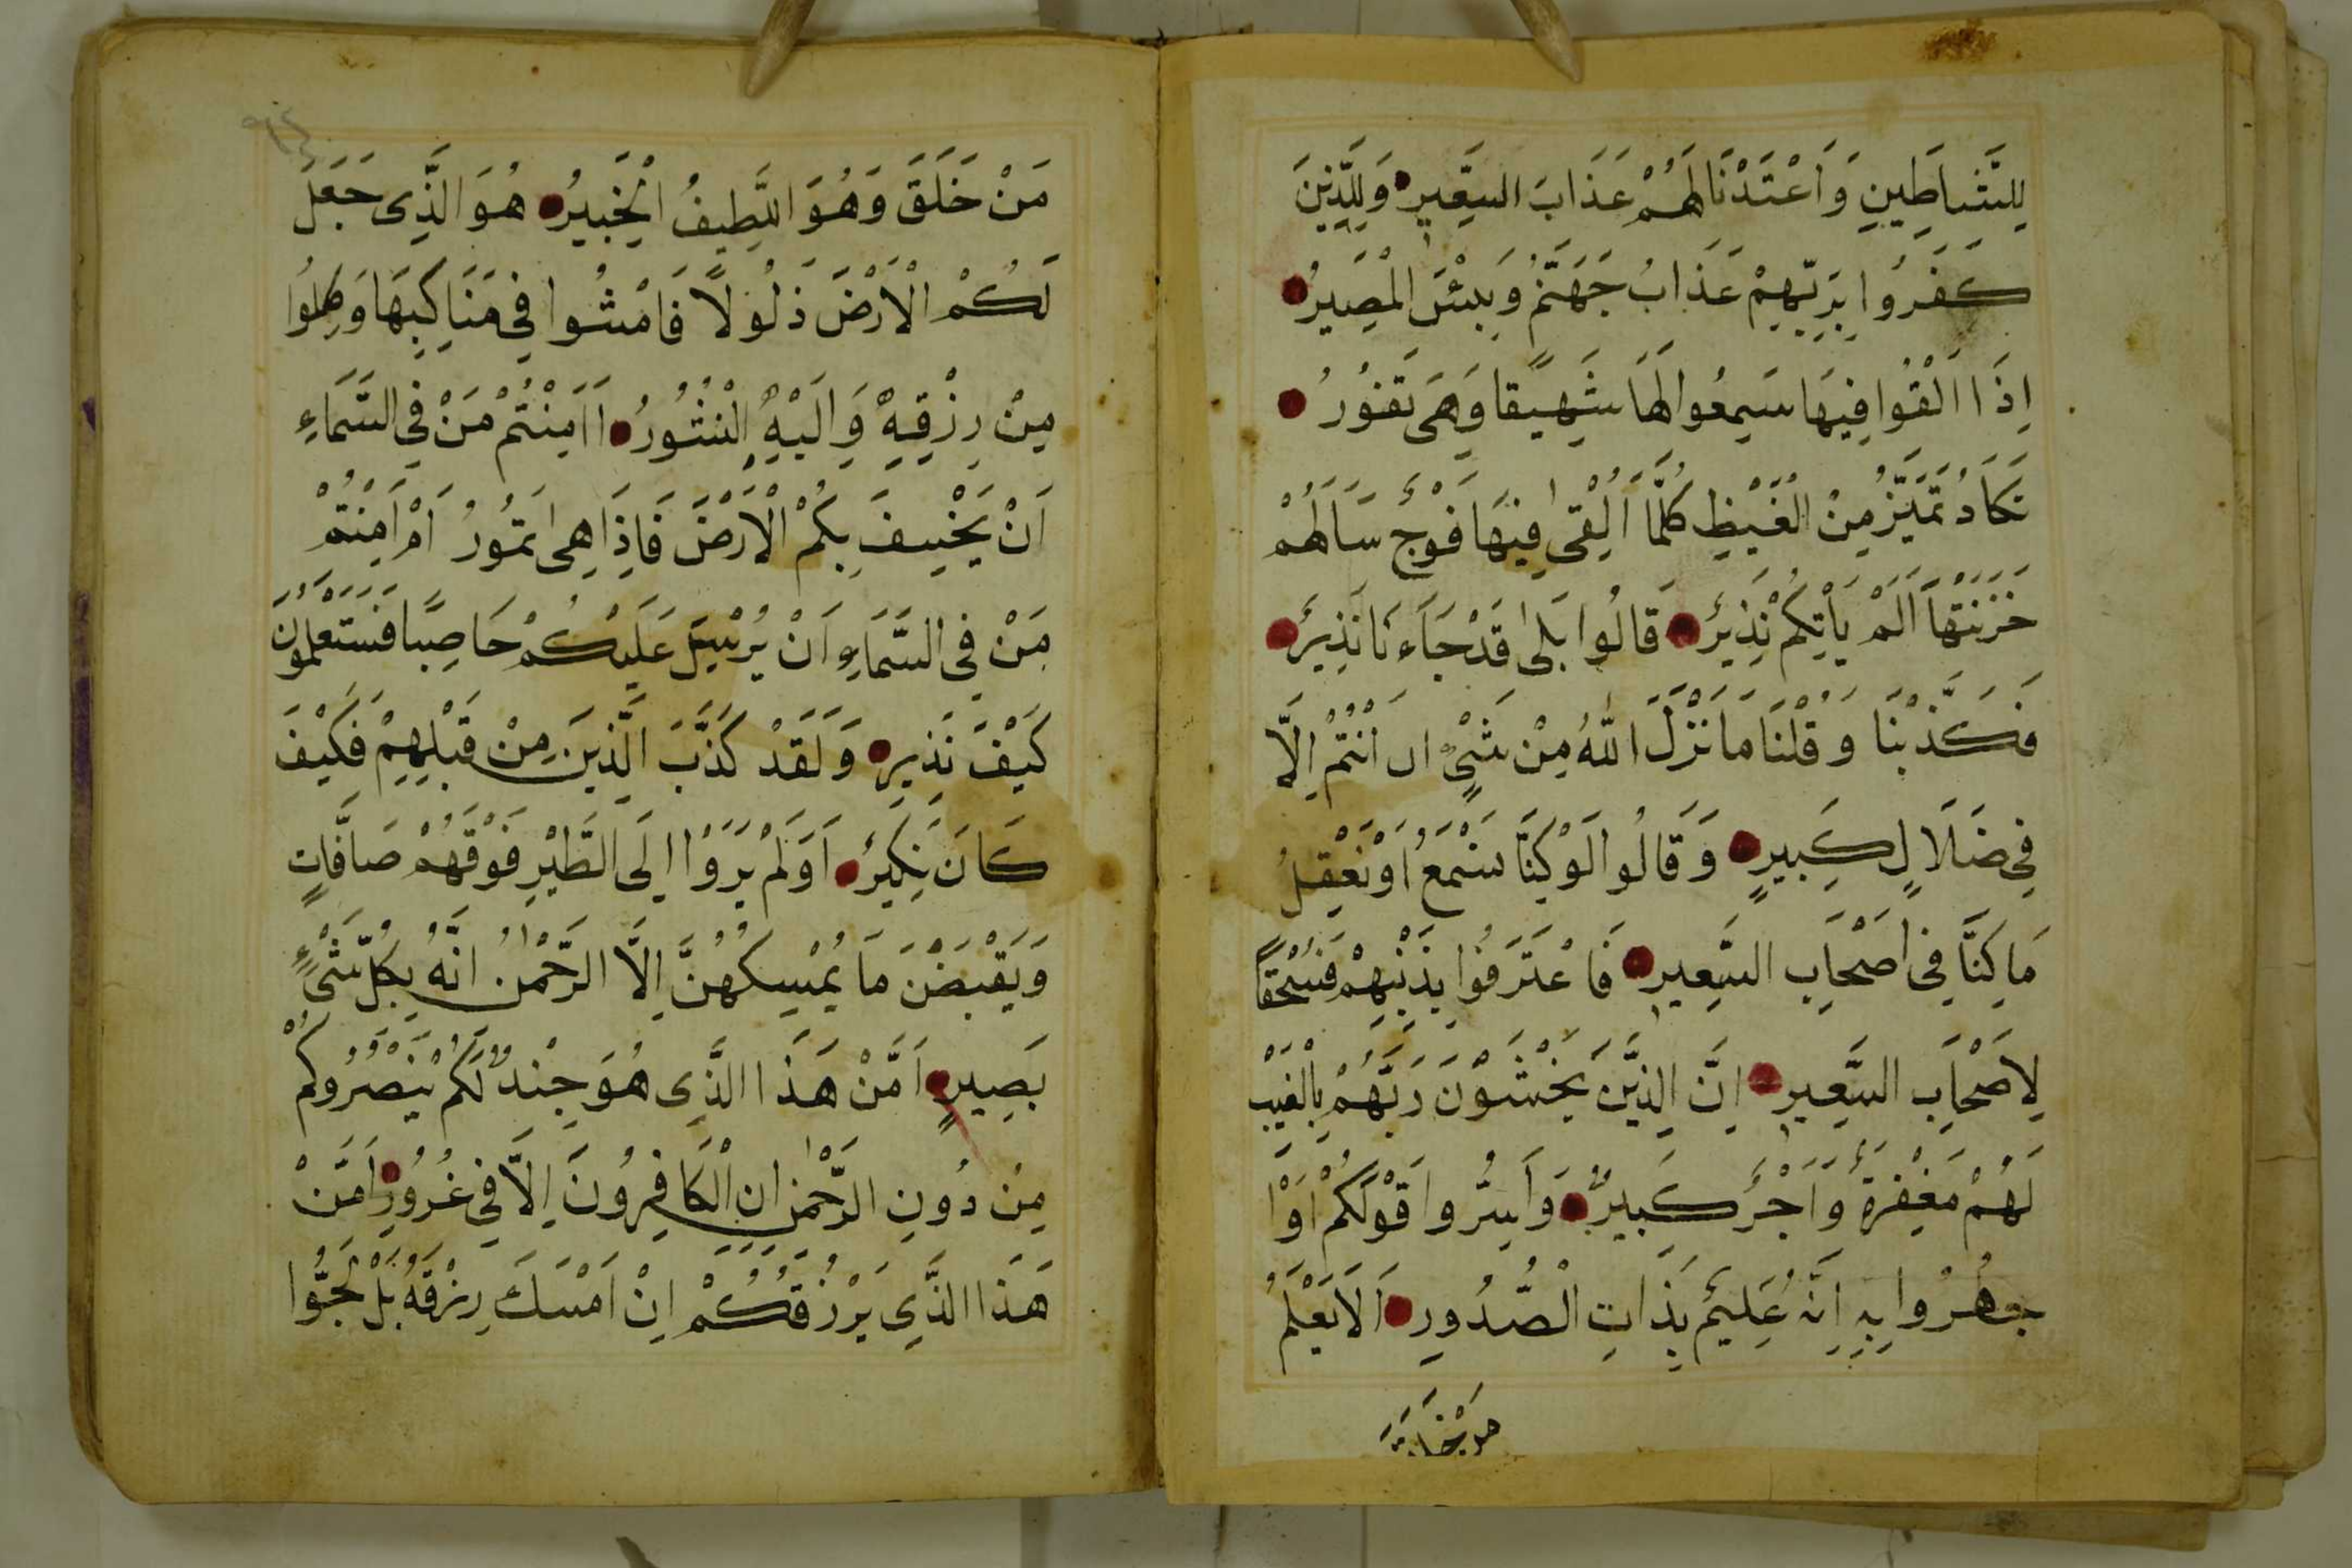 لِلشَّيَاطِينِ وَاَعْتَدْنَا لَهُمْ عَذَابَ السَّعِيرِ وَلِلَّذِينَ
كَفَرُوا بِرَبِّهِمْ عَذَابُ جَهَنَّمَ وَبِئْسَ الْمَصِيرُ
اِذَا اُلْقُوا فِيهَا سَمِعُوا لَهَا شَهِيقًا وَهِىَ تَفُورُ
تَكَادُ تَمَيَّزُ مِنَ الْغَيْظِ كُلَّمَا اُلْقِىَ فِيهَا فَوْجٌ سَاَلَهُمْ
خَزَنَتُهَا اَلَمْ يَاْتِكُمْ نَذِيرٌ قَالُوا بَلٰى قَدْ جَاءَنَا نَذِيرٌ
فَكَذَّبْنَا وَقُلْنَا مَا نَزَّلَ اللّٰهُ مِنْ شَىْءٍ اِنْ اَنْتُمْ اِلَّا
فِى ضَلَالٍ كَبِيرٍ وَقَالُوا لَوْ كُنَّا نَسْمَعُ اَوْ نَعْقِلُ
مَا كُنَّا فِى اَصْحَابِ السَّعِيرِ فَاعْتَرَفُوا بِذَنْبِهِمْ فَسُحْقًا
لِاَصْحَابِ السَّعِيرِ اِنَّ الَّذِينَ يَخْشَوْنَ رَبَّهُمْ بِالْغَيْبِ
لَهُمْ مَغْفِرَةٌ وَاَجْرٌ كَبِيرٌ وَاَسِرُّوا قَوْلَكُمْ اَوِ ا
جْهَرُوا بِهِ اِنَّهُ عَلِيمٌ بِذَاتِ الصُّدُورِ اَلَا يَعْلَمُ
مَنْ خَلَقَ
مَنْ خَلَقَ وَهُوَ اللَّطِيفُ الْخَبِيرُ هُوَ الَّذِى جَعَلَ
لَكُمُ الْاَرْضَ ذَلُولًا فَامْشُوا فِى مَنَاكِبِهَا وَكُلُوا
مِنْ رِزْقِهِ وَاِلَيْهِ النُّشُورُ اَاَمِنْتُمْ مَنْ فِى السَّمَاءِ
اَنْ يَخْسِفَ بِكُمُ الْاَرْضَ فَاِذَا هِىَ تَمُورُ اَمْ اَمِنْتُمْ
مَنْ فِى السَّمَاءِ اَنْ يُرْسِلَ عَلَيْكُمْ حَاصِبًا فَسَتَعْلَمُونَ
كَيْفَ نَذِيرِ وَلَقَدْ كَذَّبَ الَّذِينَ مِنْ قَبْلِهِمْ فَكَيْفَ
كَانَ نَكِيرِ اَوَلَمْ يَرَوْا اِلَى الطَّيْرِ فَوْقَهُمْ صَافَّاتٍ
وَيَقْبِضْنَ مَا يُمْسِكُهُنَّ اِلَّا الرَّحْمٰنُ اِنَّهُ بِكُلِّ شَىْءٍ
بَصِيرٌ اَمَّنْ هَذَا الَّذِى هُوَ جُنْدٌ لَكُمْ يَنْصُرُكُمْ
مِنْ دُونِ الرَّحْمٰنِ اِنِ الْكَافِرُونَ اِلَّا فِى غُرُورٍ اَمَّنْ
هَذَا الَّذِى يَرْزُقُكُمْ اِنْ اَمْسَكَ رِزْقَهُ بَلْ لَجُّوا